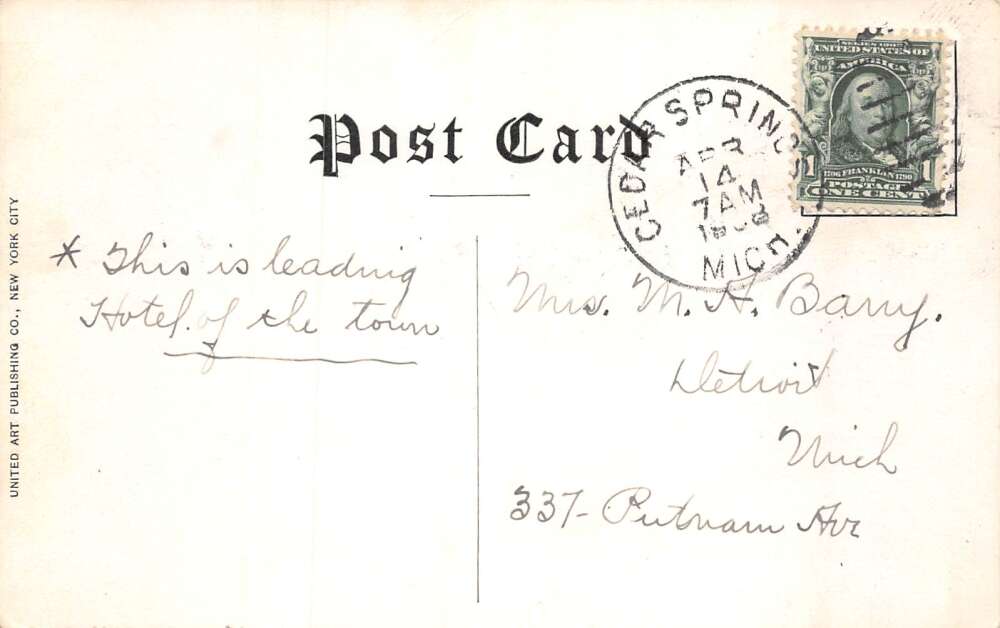 SERIES 1902
UNITED STATES OF
AMERICA
1 1
1706 FRANKLIN 1790
POSTAGE
ONE CENT
Post Card
CEDAR SPRINGS
APR
14
7 AM
1908
MICH.
UNITED ART PUBLISHING CO., NEW YORK CITY
* This is leading
Hotel. of the town
Mrs. M. A. Barry.
Detroit
Mich
337- Putnam Ave